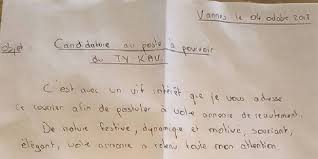 Vannes, le 04 octobre 2018
Objet : Candidature au poste à pourvoir
au TY KAV.
C'est avec un vif intérêt que je vous adresse
ce courrier afin de postuler à votre annonce de recrutement.
De nature festive, dynamique et motivé, souriant,
élégant, votre annonce a retenu toute mon attention